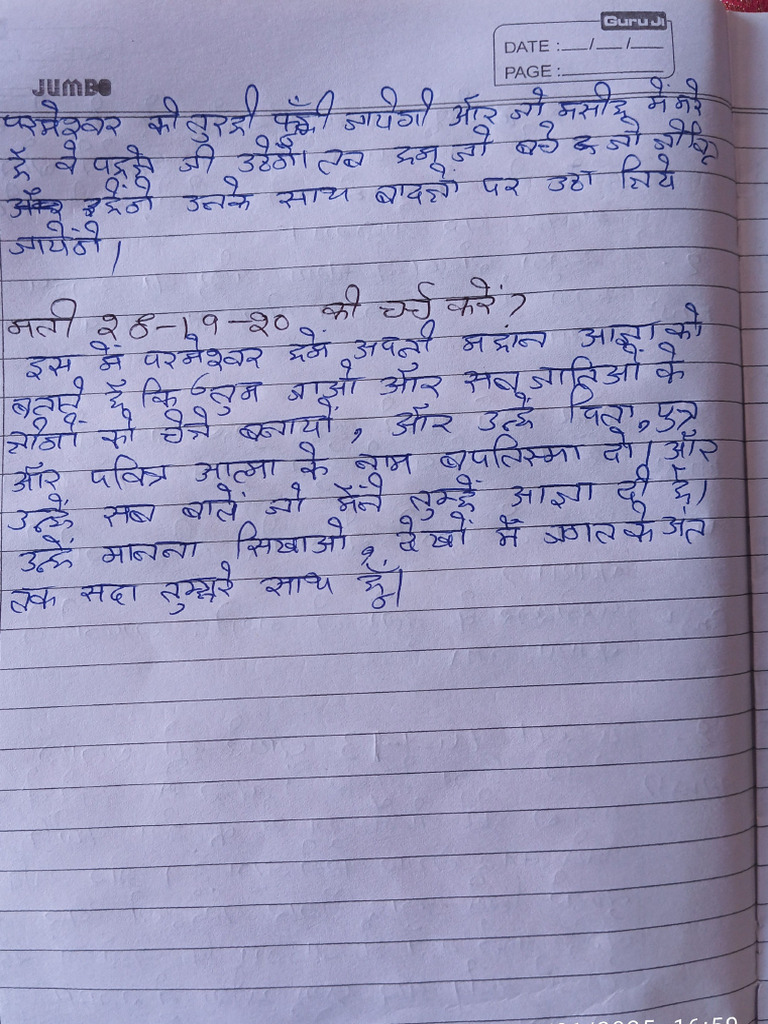 Guru Ji
DATE : __/__/__
PAGE : ______
JUMBO
परमेश्वर की तुरही फूँकी जायेगी और जो मसीह में मरे
हैं वे पहले जी उठेगें। तब हम जो बचे जो जीवित
रहेंगे उनके साथ बादलों पर उठा लिये
जायेंगे।
मती 28-19-20 की चर्च करें?
इस में परमेश्वर हमें अपनी महान आज्ञा को
बताते हैं कि "तुम जाओ और सब जातिओं के
लोगों को चेले बनायों, और उन्हें पिता, पुत्र
और पवित्र आत्मा के नाम बपतिस्मा दो। और
उन्हें सब बातें जो मैंने तुम्हें आज्ञा दी हैं।
उन्हें मानना सिखाओ, देखों मैं जगत के अंत
तक सदा तुम्हारे साथ हूँ।